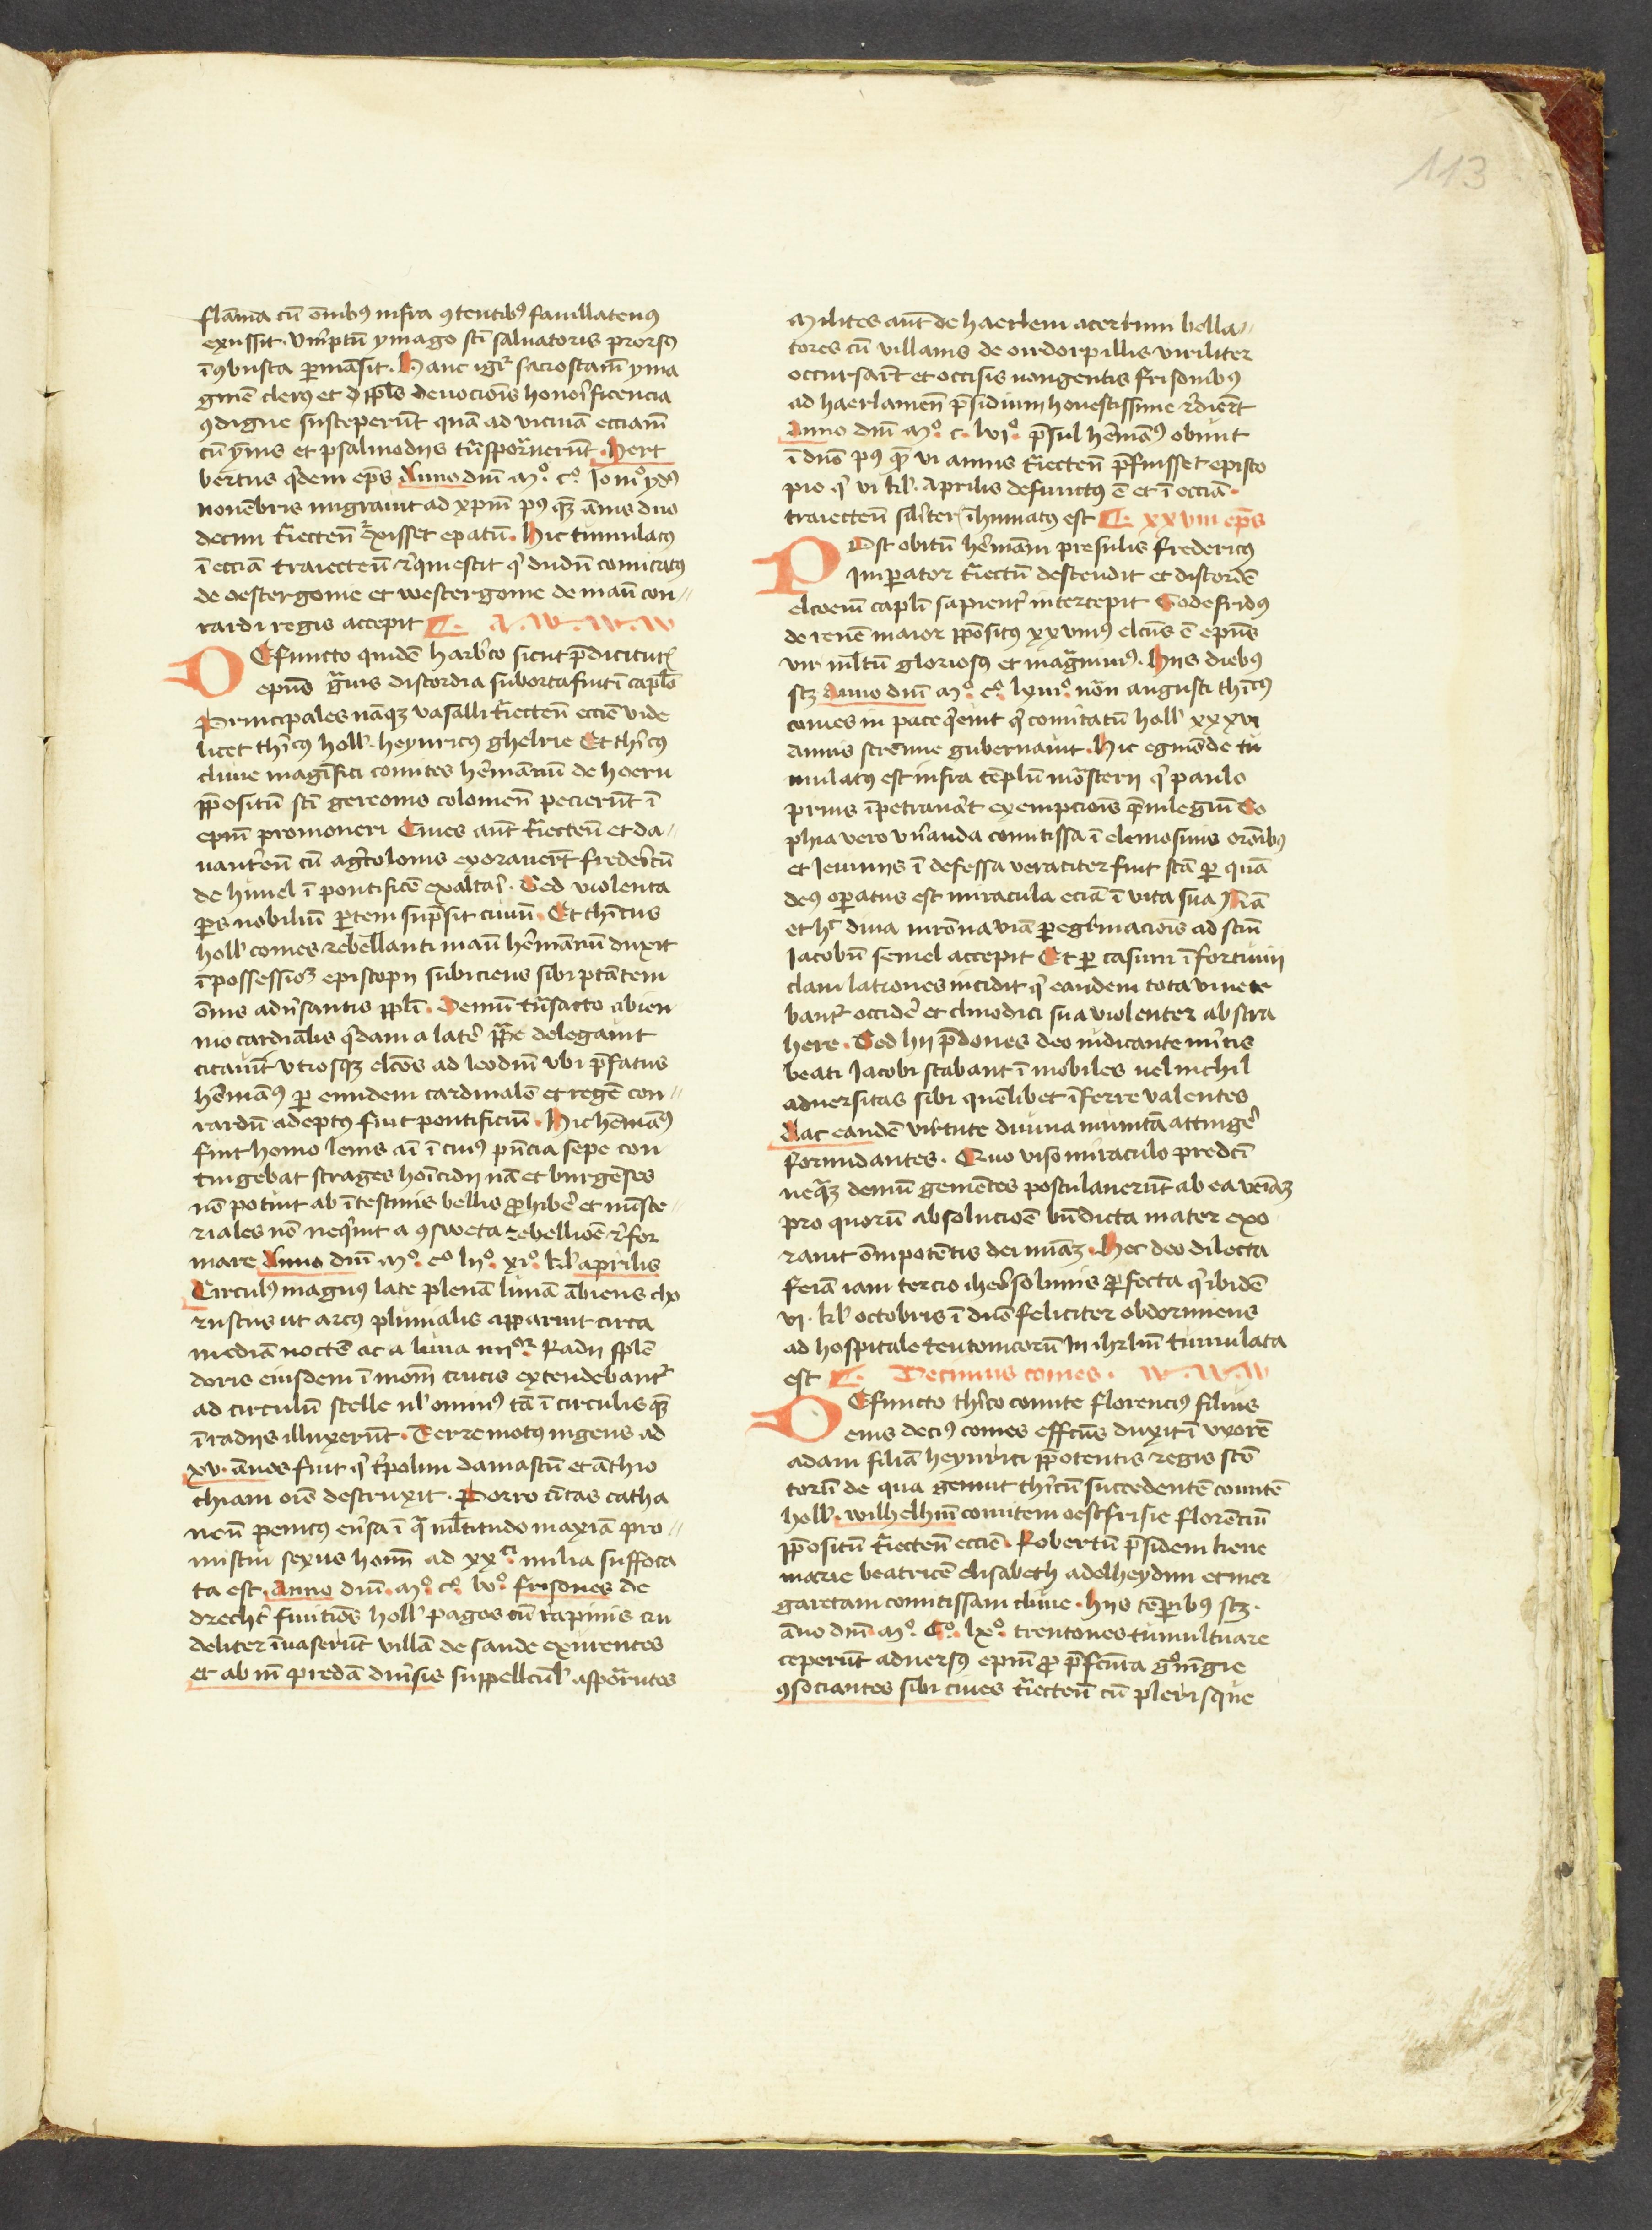 113
flāma cū om̄ibꝫ infra ꝯtentibꝰ fauillatenꝰ
exussit. Verūptū ymago scī saluatoris prorsꝰ
īꝯbusta ꝑmāsit. Hanc igiᷣ sacrosctam̄ yma
ginē clerꝰ et ppl̄s deuociōis honorificencia
ꝯdigne susceperūt quā ad vicinā eccīam
cū ymis et psalmodijs trāsportauerūt. Hert
bertus qͥdem ep̄s Anno dnī Mº. Cº. l̄o ydꝰ
nouēbris migrauit ad xp̄m pꝰ qꝫ ānis duo
decim traiecteñ rexisset ep̄atū. Hic tumulatꝰ
ī eccīa traiecteñ reqͥescit qͥ dudū comitatꝰ
de oestergome et westergome de manu con
rardi regis accepit
DEfuncto quidē harb̄to sicut p̄dicitur
ep̄us gͣuis discordia suborta fuit ī capl̄o
Principales nāqꝫ vasalli traiecteñ ecc̄ie vide
licet th̄icꝰ holl̄. heynricus ghelrie Et th̄icꝰ
cliue magnifici comites hermānū de hoern
pp̄ositū scī gereonis colonieñ pecierūt ī
ep̄m promoueri Ciues aūt traiecteñ et da
uantreñ cū agricolonis exorauerūt frederīcū
de hunel ī pontificē exaltari. Sed violenta
pars nobiliū partem sup̄sit ciuiū. Et th̄icus
holl̄ comes rebellanti manu hermānū duxit
ī possessionē episcopij subiciens sibi ptātem
om̄is aduersantis ppl̄i. Demū trāsacto abien
nio cardinalis qͥdam a latere pape delegauit
citauit vtrosqꝫ elcōs ad leodiū vbi p̄fatus
hermānꝰ per eundem cardinalē et regē con
rardū adeptꝰ fuit pontificiū. Hic hermānꝰ
fuit homo lenis aī ī cuiꝰ pn̄cia sepe con
tingebat strages homicidij nā et burgēses
nō potuit ab ītestinis bellis ꝓhibere et miste
riales nō neqͥuit a ꝯsweta rebellioē refor
mare Anno dnī Mº. Cº lijº. xiº. kl̄ aprilis
Circulꝰ magnus late plenā lunā ābiens cho
ruscus ut arcꝰ pluuialis apparuit circa
mediā noctē ac a luna iiijor Radij splē
doris eiusdem ī modū crucis extendebantur
ad circulū stelle nl̄ominꝰ tā ī circulis qꝫ
ī radijs illuxerūt. Terre motꝰ ingens ad
xv. ānos fuit qͥ tripolim damascū et āthio
chiam oīe destruxit. Porro ciuitas catha
neñ penitꝰ eūsa ī qͣ ml̄titudo maxīa pro
miscui sexus hoīm ad xxti. milia suffoca
ta est. Anno dnī. Mº. Cº. lvº. frisones de
drechter finitīos holl̄ pagos cū rapinis cru
deliter īuaserūt villā de sande exurentes
et ab īm predā diuisis suppellectil̄ asportātes
Milites aūt de haerlem acerrimi bella
tores cū villanis de oirdorpillis viriliter
occursarūt et occisis nongentis frisonibꝰ
ad haerlamen̄ p̄sidium honestissime redierūt
Anno dnī Mº. c. lvjº. p̄sul hermānꝰ obijt
ī dnō pꝰ qꝫ vi annis traiecteñ p̄fuisset episco
pio qͥ vi kl̄. Aprilis defunctꝰ ē et ī eccīa.
traiecteñ sil̄iter īhumatꝰ est xxviii ep̄s
POst obitū hermāni presulis fredericꝰ
Imperator traiectū descendit et discordē
elcōem capl̄i sapienter intercepit Godefridꝰ
de renē maior pp̄ositꝰ xxviiiꝰ elc̄us ē ep̄us
vir ml̄tū gloriosꝰ et magnanimꝰ. Hijs diebꝰ
scꝫ Anno dnī Mº. Cº. lxiijº. nōn augusti th̄icꝰ
comes in pace qͥeuit qͥ comitatū holl̄ xxxvi
annis strenue gubernauit. Hic egmōde tu
mulatꝰ est infra tēplū monasterij qͥ paulo
prius īpetrauat exempciōis pͥuilegiū So
phia vero veneranda comitissa ī elemosinis orōnibꝰ
et Ieiunijs ī defessa veraciter fuit sctā per quā
deꝰ operatus est miracula eciā ī vita sua Nā
et hͨ diua matrona viā peregrinaciōis ad sctm̄
Jacobū semel accepit Et per casum īfortunij
clam latrones incidit qͥ eandem tota vi nite
bantur occidere et chnodia sua violenter abstra
here. Sed hij p̄dones deo iudicante meritis
beati Jacobi stabant ī mobiles uel nichil
aduersitas sibi quēlibet īferre valentes
Ac eandē virtute diuina munitā attingere
formidantes. Quo viso miraculo predcī
neqͣꝫ demū gemētes postulauerūt ab ea veniā
pro quorū absolucioē bn̄dicta mater exo
rauit ōmipotētis dei miāꝫ. Hec deo dilecta
feīa iam tercio iherosolimis ꝓfecta qͥ ibidē
vi. kl̄ octobris ī dnō feliciter obdormiens
ad hospitale teutonicorū In ihrlm̄ tumulata
est Decimus comes.
DEfuncto th̄ico comite florencius filius
eius deciꝰ comes effcūs duxit ī vxorē
adam filiā heynrici p̄potentis regis sco
torū de qua genuit th̄icū succedentē comitē
holl̄. wilhelmū comitem oestfrisie florēciū
pp̄ositū traiecteñ ecc̄ie. Robertū p̄sidem kene
marie beatricē elisabeth adelheydim et mer
garetam comitissam cliue. Hijs tēporibꝰ scꝫ.
āno dnī. Mº. Cº. lxº. trentones tumultuare
ceperūt aduersꝰ ep̄m ꝓ p̄fcūra gronīgie
ꝯsociantes sibi ciues traiecteñ cū plerisque